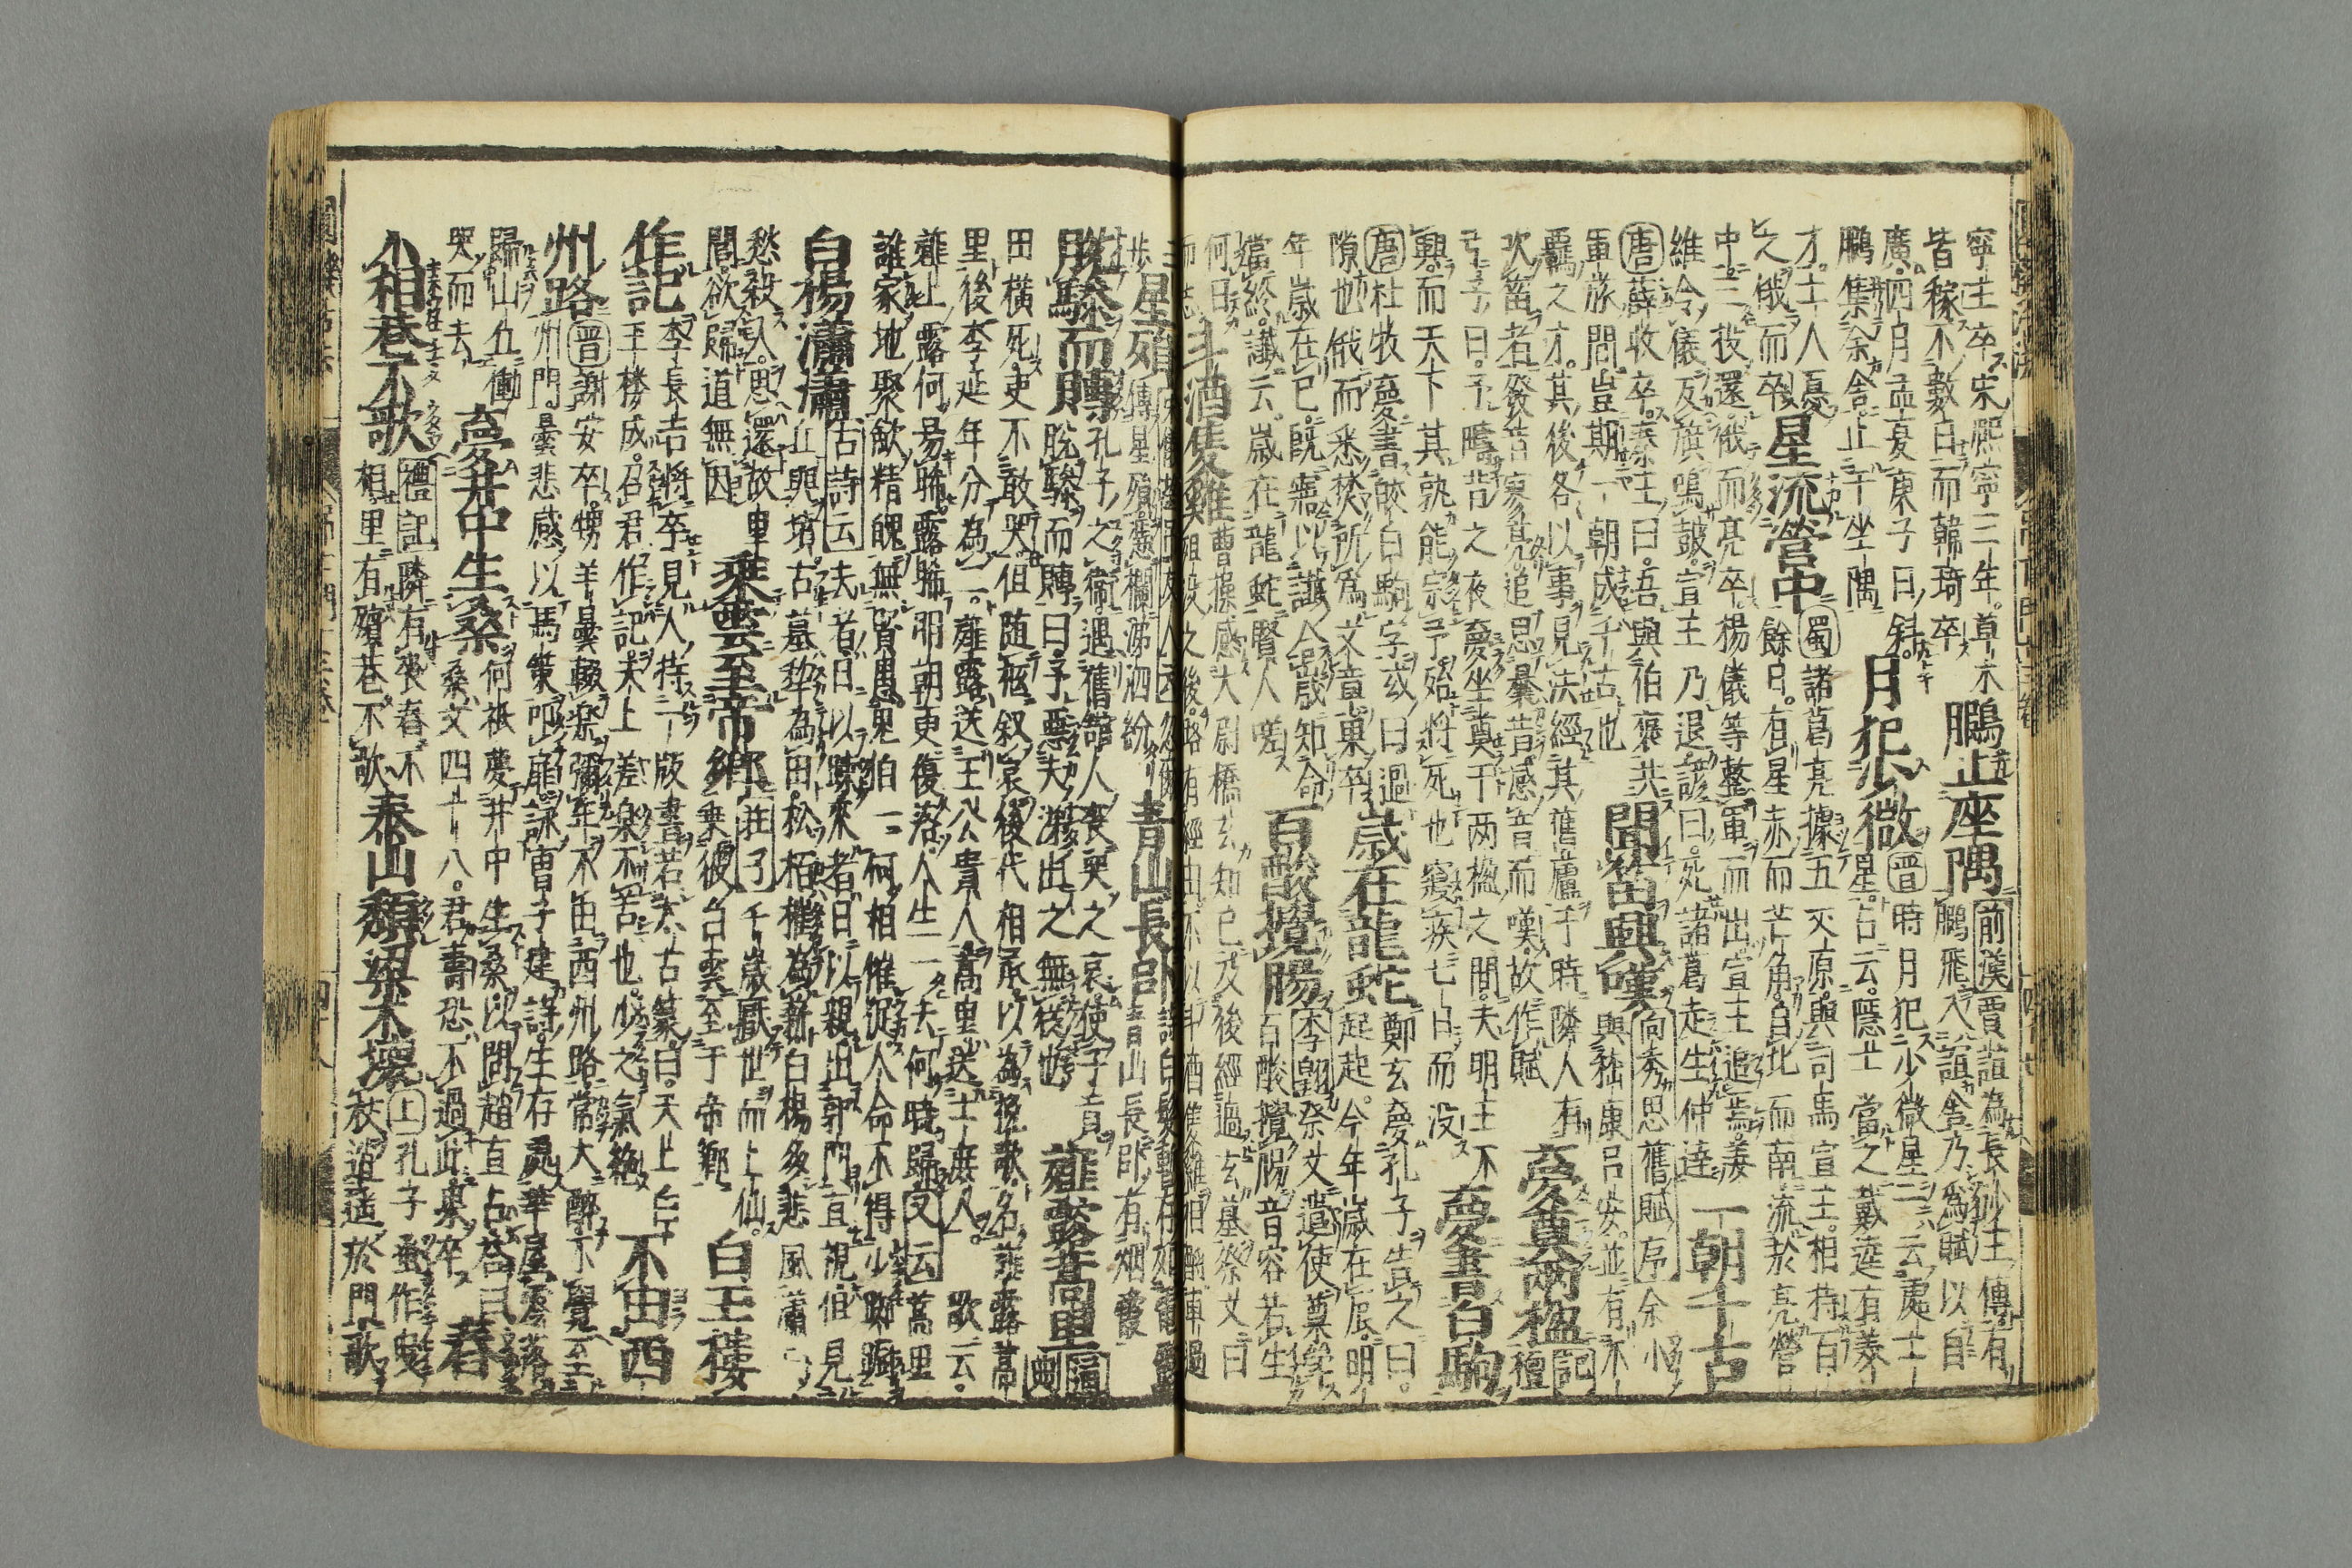 寧王卒宋熙寧三年草木
皆稼不數日而韓琦卒
鵬止座隅
前漢賈誼為長沙王傅有
鵬飛入誼舎乃為賦以自
廣四月孟夏庚子日斜
鵬集余舎止于坐隅
月犯少微
晋時月犯少微星二云處士
星占云隱士當之戴逵有美
才士人憂
之俄而卒
星流營中
蜀諸葛亮據五丈原與司馬宣王相持百
餘日有星赤而芒角自北而南流於亮營
中二投還俄而亮卒楊儀等整軍而出宣王追焉姜
維令儀反旗鳴鼓宣王乃退諺曰死諸葛走生仲達
一朝千古
唐薛收卒秦王曰吾與伯褒共
軍旅問豈期一朝成千古也
聞笛興嘆
向秀思舊賦序余
與嵇康呂安並有不
羈之才其後各以事見法經其舊廬于時隣人有
吹笛者發声寥亮追思曩昔感音而嘆故作賦
夢奠兩楹
記檀
弓予曰予疇昔之夜夢坐奠于两楹之間夫明王不
興而天下其孰能宗予始將死也寢疾七日而没
夢書白駒
唐杜牧夢書皎白駒字或曰過
隙也俄而悉焚所為文章果卒
歳在龍蛇
鄭玄夢孔子告之曰
起起今年歳在辰明
年歳在巳既寤以讖合歳知命
當終讖云歳在龍蛇賢人嗟
百酸攪腸
李翺祭文遣使奠斝
百酸攪腸音容若生
何日忘
斗酒隻雞
曹操感大尉橋玄知己及後經過玄墓祭文曰
而
徂没之後路有經由不以斗酒隻雞相酹車過
三
歩
星殞
傳星殞薨欄涕泗紛
青山長卧
青山長卧有烟霞
脱驂而賻
孔子之衛遇舊舘人喪哭之哀使子貢
脱驂而賻曰予惡夫涕出之無從也
薤露蒿里
田横死吏不敢哭但随柩叙哀後代相承以為挽歌名薤露蒿
里後李延年分為二薤露送王公貴人蒿里送士庶人歌云
薤上露何易晞露晞明朝更復落人生一去何時歸又云蒿里
誰家地聚歛精魄無賢愚鬼伯一何相催促人命不得少踟蹰
白楊瀟瀟
古詩云去者日以踈來者日以親出郭門直視但見
丘與墳古墓犂為田松栢摧為薪白楊多悲風蕭
愁殺人思還故里
閭欲歸道無因
乗雲至帝郷
莊子千歳厭世而上仙
乗彼白雲至于帝郷
白玉樓
作記
李長吉將卒見人持一版書若太古篆曰天上白
玉楼成召君作記天上差楽不苦也少之氣絶
不由西
州路
晋謝安卒甥羊曇輟楽彌年不由西州路常大醉不覺至
州門曇悲感以馬策叩扉詠曹子建詩生存處華屋零落
歸山丘慟
哭而去
夢井中生桑
何祗夢井中生桑以問趙直占荅曰
桑文四十八君壽恐不過此果卒
舂
不相巷不歌
禮記隣有喪舂不
相里有殯巷不歌
泰山頽梁木壞
上孔子蚤作曳
杖逍遥於門歌